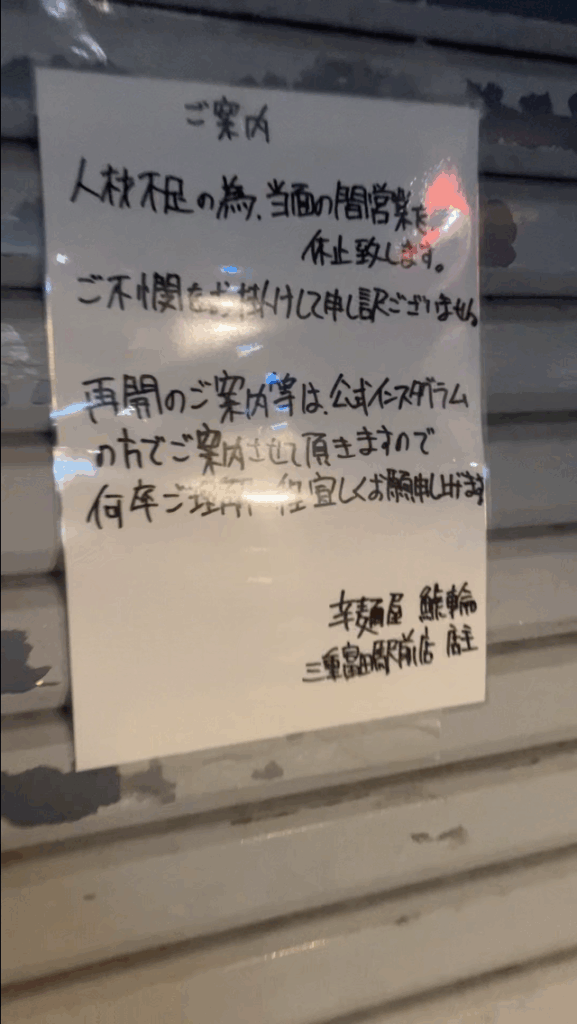 ご案内
人材不足の為、当面の間営業を
休止致します。
ご不憫をお掛けして申し訳ございません
再開のご案内等は、公式インスタグラム
の方でご案内させて頂きますので
何卒ご理解 宜しくお願申し上げます
辛麺屋 鯱輪
三重富田駅前店 店主